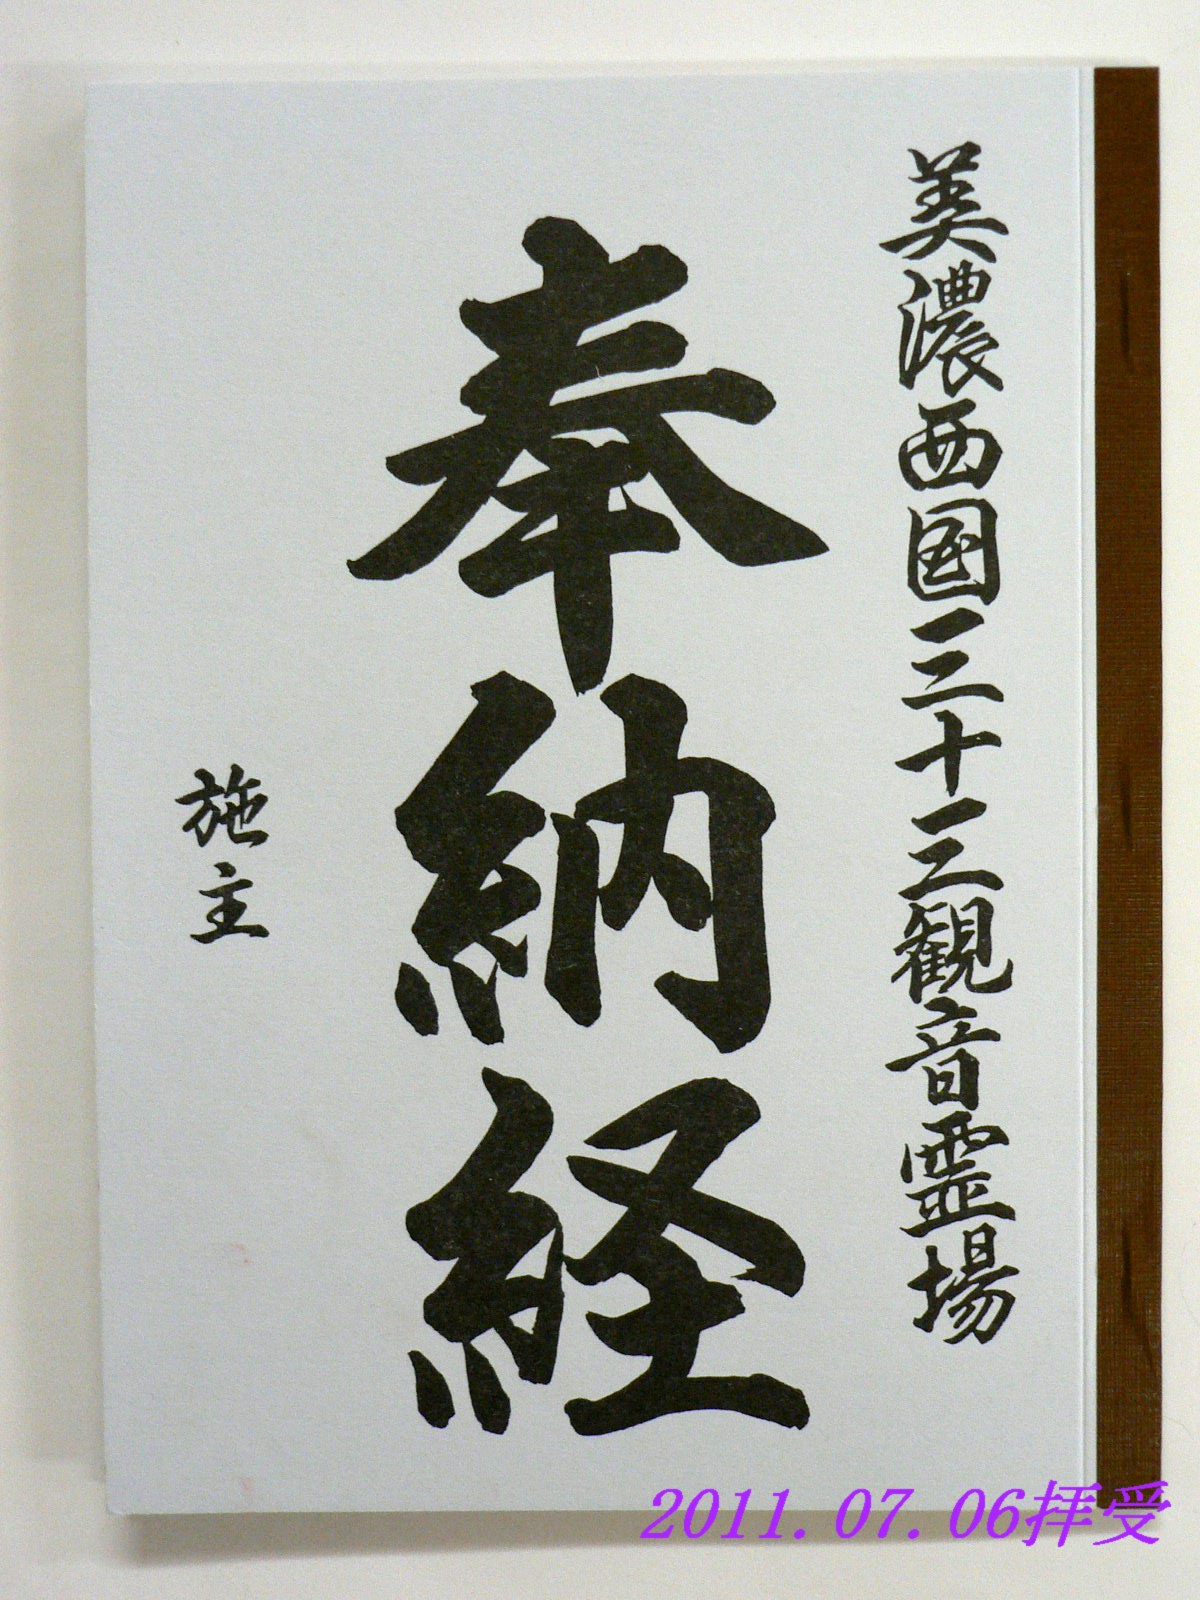 美濃西国三十三観音霊場
奉納経
施主
2011.07.06拝受